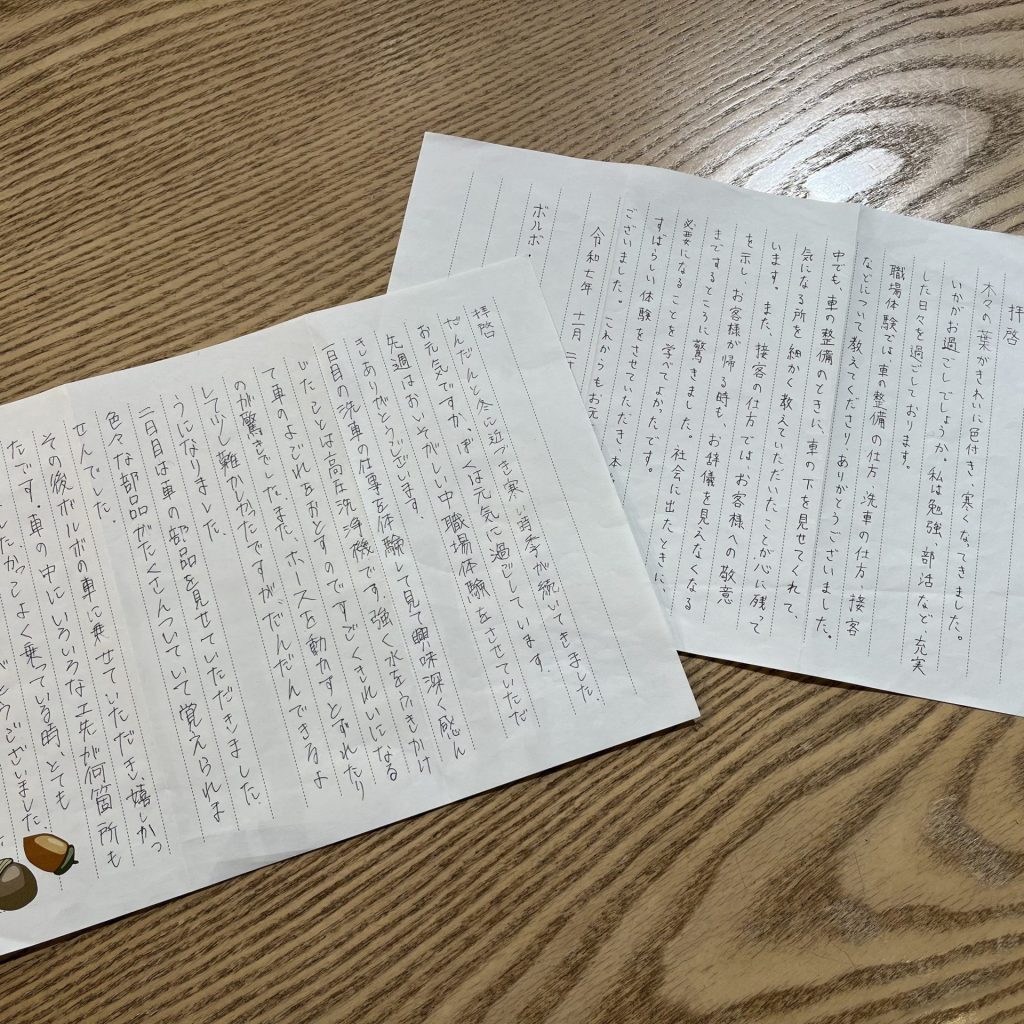 拝啓
木々の葉がきれいに色付き、寒くなってきました。
いかがお過ごしでしょうか。私は勉強、部活など、充実
した日々を過ごしております。
職場体験では車の整備の仕方、洗車の仕方、接客
などについて教えてくださりありがとうございました。
中でも、車の整備のときに、車の下を見せてくれて、
気になる所を細かく教えていただいたことが心に残って
います。また、接客の仕方では、お客様への敬意
を示し、お客様が帰る時も、お辞儀を見えなくなる
まですることろに驚きました。社会に出たときに、
必要になることを学べてよかったです。
すばらしい体験をさせていただき、本
ございました。これからもお元
令和七年 十一月 二十
ボルボ・
拝啓
だんだんと冬に近づき寒い季季が続いてきました。
お元気ですか、ぼくは元気に過ごしています.
先週はおいそがしい中職場体験をさせていただ
きありがとうございます.
一日目の洗車の仕事を体験して見て興味深く感ん
じたことは高圧洗浄機です.強く水をふきかけ
て車のよごれをおとすのですごくきれいになる
のが驚きでした.また、ホースを動かすとずれたり
して少し難かしかったですが、だんだんできるよ
うになりました
二日目は車の部品を見せていただだきました.
色々な部品がたくさんついていて覚えられま
せんでした.
その後ボルボの車に乗せていただき,嬉しかっ
たです.車の中にいろいろな工夫が何箇所も
したかっこよく乗っている時、とても
とうございました.